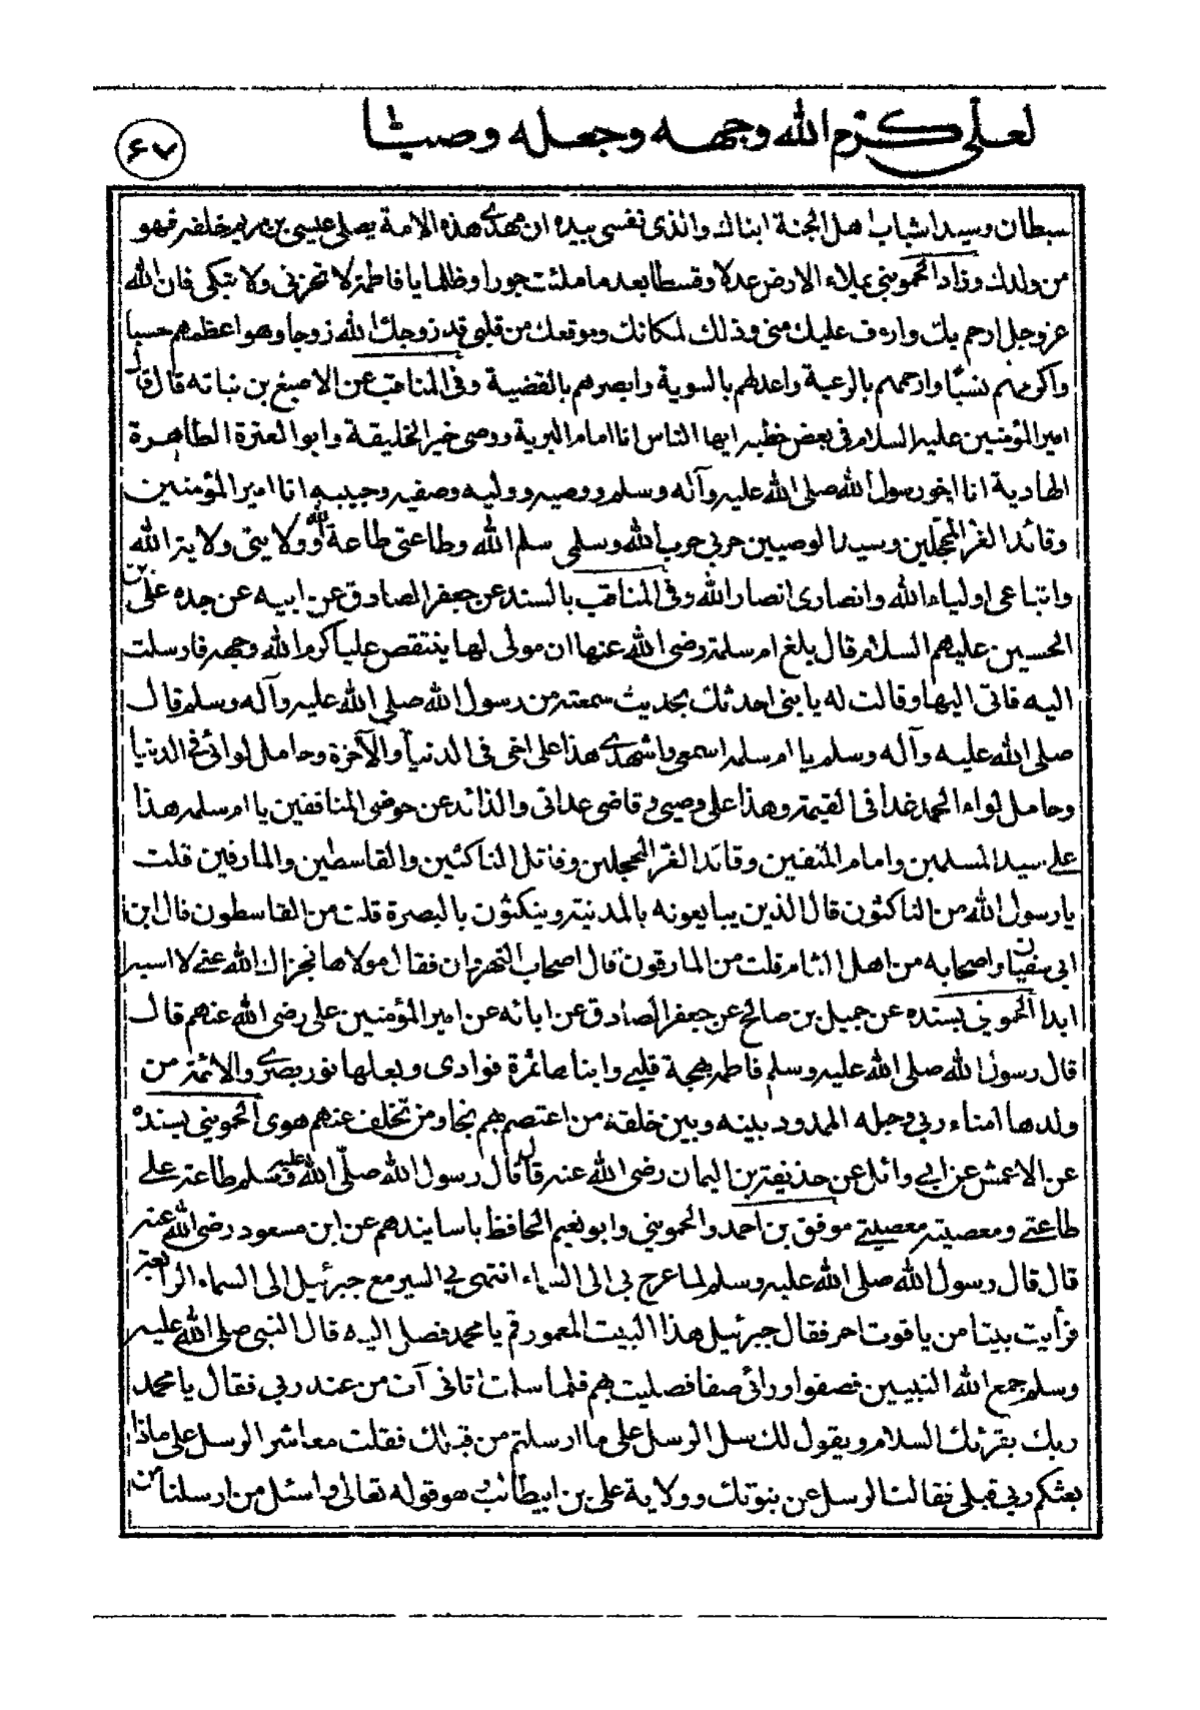 لعلى كرم الله وجهه وجعله وصيا
٦٧
سبطان وسيدا شباب اهل الجنة ابناك والذى نفسى بيده ان مهدى هذه الامة يصلى عيسى بن مريم خلفه فهو
من ولدك وزاد الحموينى يملاء الارض عدلا وقسطا بعد ما ملئت جورا وظلما يا فاطمة لا تحزنى ولا تبكى فان الله
عز وجل ارحم بك وارءف عليك منى وذلك لمكانك وموقعك من قلبى قد زوجك الله زوجا وهو اعظمهم حسبا
واكرمهم نسبا وارحمهم بالرعية واعدلهم بالسوية وابصرهم بالقضية وفى المناقب عن الاصبغ بن نباته قال قال
امير المؤمنين عليه السلام فى بعض خطبه ايها الناس انا امام البرية ووصى خير الخليقة وابو العترة الطاهرة
الهادية انا اخو رسول الله صلى الله عليه وآله وسلم ووصيه ووليه وصفيه وحبيبه انا امير المؤمنين
وقائد الغر المحجلين وسيد الوصيين حربى حرب الله وسلمى سلم الله وطاعتى طاعة الله وولايتى ولاية الله
واتباعى اولياء الله وانصارى انصار الله وفى المناقب بالسند عن جعفر الصادق عن ابيه عن جده على بن
الحسين عليهم السلام قال بلغ ام سلمة رضى الله عنها ان مولى لها ينتقص عليا كرم الله وجهه فارسلت
اليه فاتى اليها وقالت له يا بنى احدثك بحديث سمعته من رسول الله صلى الله عليه وآله وسلم قال
صلى الله عليه وآله وسلم يا ام سلمه اسمعى واشهدى هذا على اخى فى الدنيا والآخرة وحامل لوائى فى الدنيا
وحامل لواء الحمد غدا فى القيمة وهذا على وصيى وقاضى عداتى والذائد عن حوضى المنافقين يا ام سلمه هذا
على سيد المسلمين وامام المتقين وقائد الغر المحجلين وقاتل الناكثين والقاسطين والمارقين قلت
يا رسول الله من الناكثون قال الذين يبايعونه بالمدينة وينكثون بالبصرة قلت من القاسطون قال ابن
ابى سفيان واصحابه من اهل الشام قلت من المارقون قال اصحاب النهروان فقال مولاها نجزاك الله عنى لا اسبه
ابدا الحموينى بسنده عن جميل بن صالح عن جعفر الصادق عن ابائه عن امير المؤمنين على رضى الله عنهم قال
قال رسول الله صلى الله عليه وسلم فاطمه بهجة قلبى وابناها ثمرة فوادى وبعلها نور بصرى والائمة من
ولدها امناء ربى وحبله الممدود بينه وبين خلقه من اعتصم بهم نجا ومن تخلف عنهم هوى الحموينى بسنده
عن الاعمش عن ابى وائل عن حذيفة بن اليمان رضى الله عنه قال قال رسول الله صلى الله عليه وسلم طاعة على
طاعتى ومعصيته معصيتى موفق بن احمد والحموينى وابو نعيم الحافظ باسانيدهم عن ابن مسعود رضى الله عنه
قال قال رسول الله صلى الله عليه وسلم لما عرج بى الى السماء انتهى بى السير مع جبرئيل الى السماء الرابعة
فرأيت بيتا من ياقوت احمر فقال جبرئيل هذا البيت المعمور قم يا محمد فصل اليه قال النبى صلى الله عليه
وسلم جمع الله النبيين فصفوا ورائى صفا فصليت بهم فلما سلمت اتانى آت من عند ربى فقال يا محمد
ربك يقرئك السلام ويقول لك سل الرسل على ما ارسلتم من قبلك فقلت معاشر الرسل على ماذا
بعثكم ربى قبلى فقالت الرسل عن نبوتك وولاية على بن ابيطالب وهو قوله تعالى واسئل من ارسلنا من